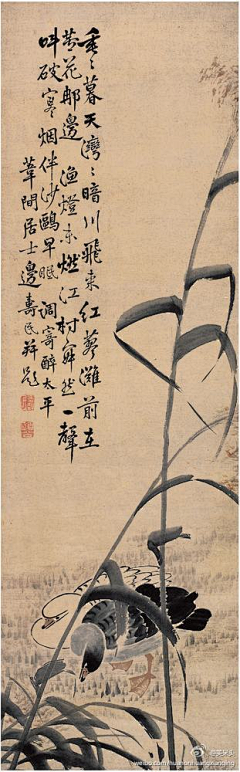 垂〻暮天灣〻暗川飛来紅蓼灘前在
蘆花那邊漁燈未燃江村寂然一聲
叫破寒烟伴沙鷗早眠調寄醉太平
葦間居士邊壽民并題